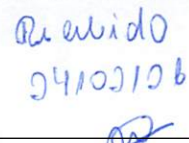 Recibido
24/02/26